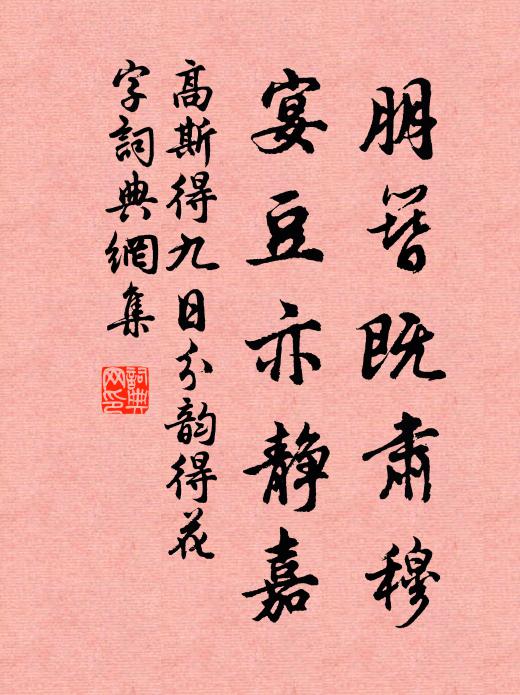 朋簪既肃穆
宴豆亦静嘉
高斯得九日分韵得花
字詞典網集
詞典網印